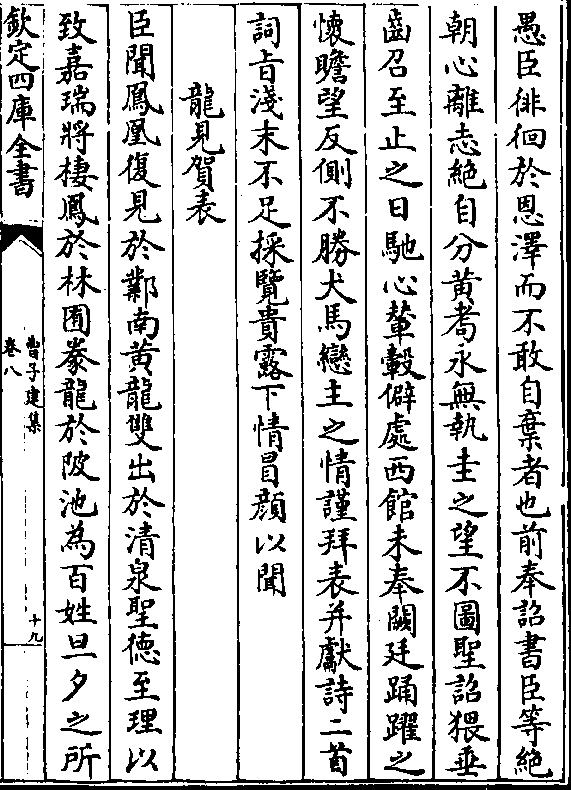 愚臣徘徊於恩澤而不敢自棄者也前奉詔書臣等絶
朝心離志絶自分黄耉永無執圭之望不圖聖詔猥垂
齒召至止之日馳心輦轂僻處西館未奉闕廷踊躍之
懷瞻望反側不勝犬馬戀主之情謹拜表并獻詩二首
詞旨淺末不足採覽貴露下情冒顔以聞
龍見賀表
臣聞鳳凰復見於鄴南黄龍雙出於清泉聖德至理以
致嘉瑞將棲鳳於林囿豢龍於陂池為百姓旦夕之所
欽定四庫全書
曹子建集
卷八
十九